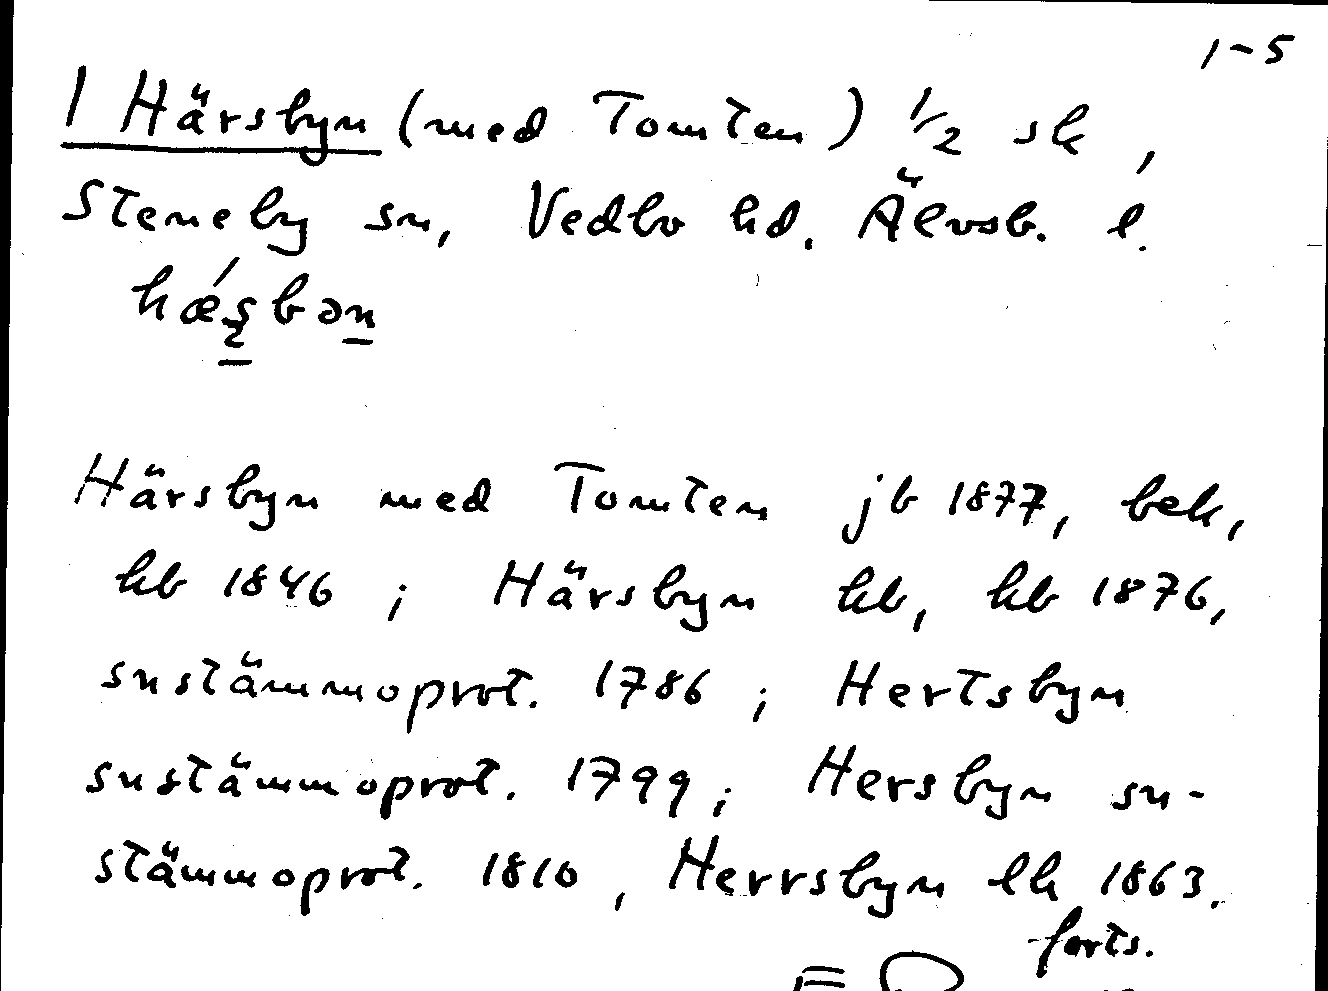 1-5
1 Härsbyn (med Tomten) 1/2 sk,
Steneby sn, Vedbo hd. Älvsb. l.
hǽʂbən
Härsbyn med Tomten jb 1877, bek,
kb 1846; Härsbyn kb, hb 1876,
snstämmoprot. 1786; Hertsbyn
snstämmoprot. 1799; Hersbyn sn-
stämmoprot. 1810, Herrsbyn lh 1863.
forts.